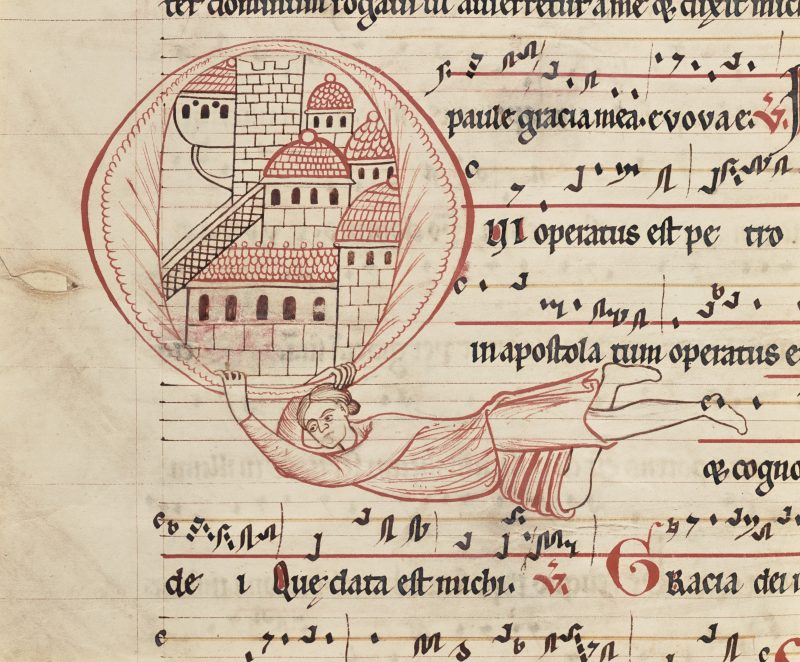 ter dominum rogavi ut auferretur a me & dixit michi
paule gracia mea. evovae. V.
QUI operatus est pe tro
in apostola tum operatus e
& cogno
de i Que data est michi. V. GRacia dei i